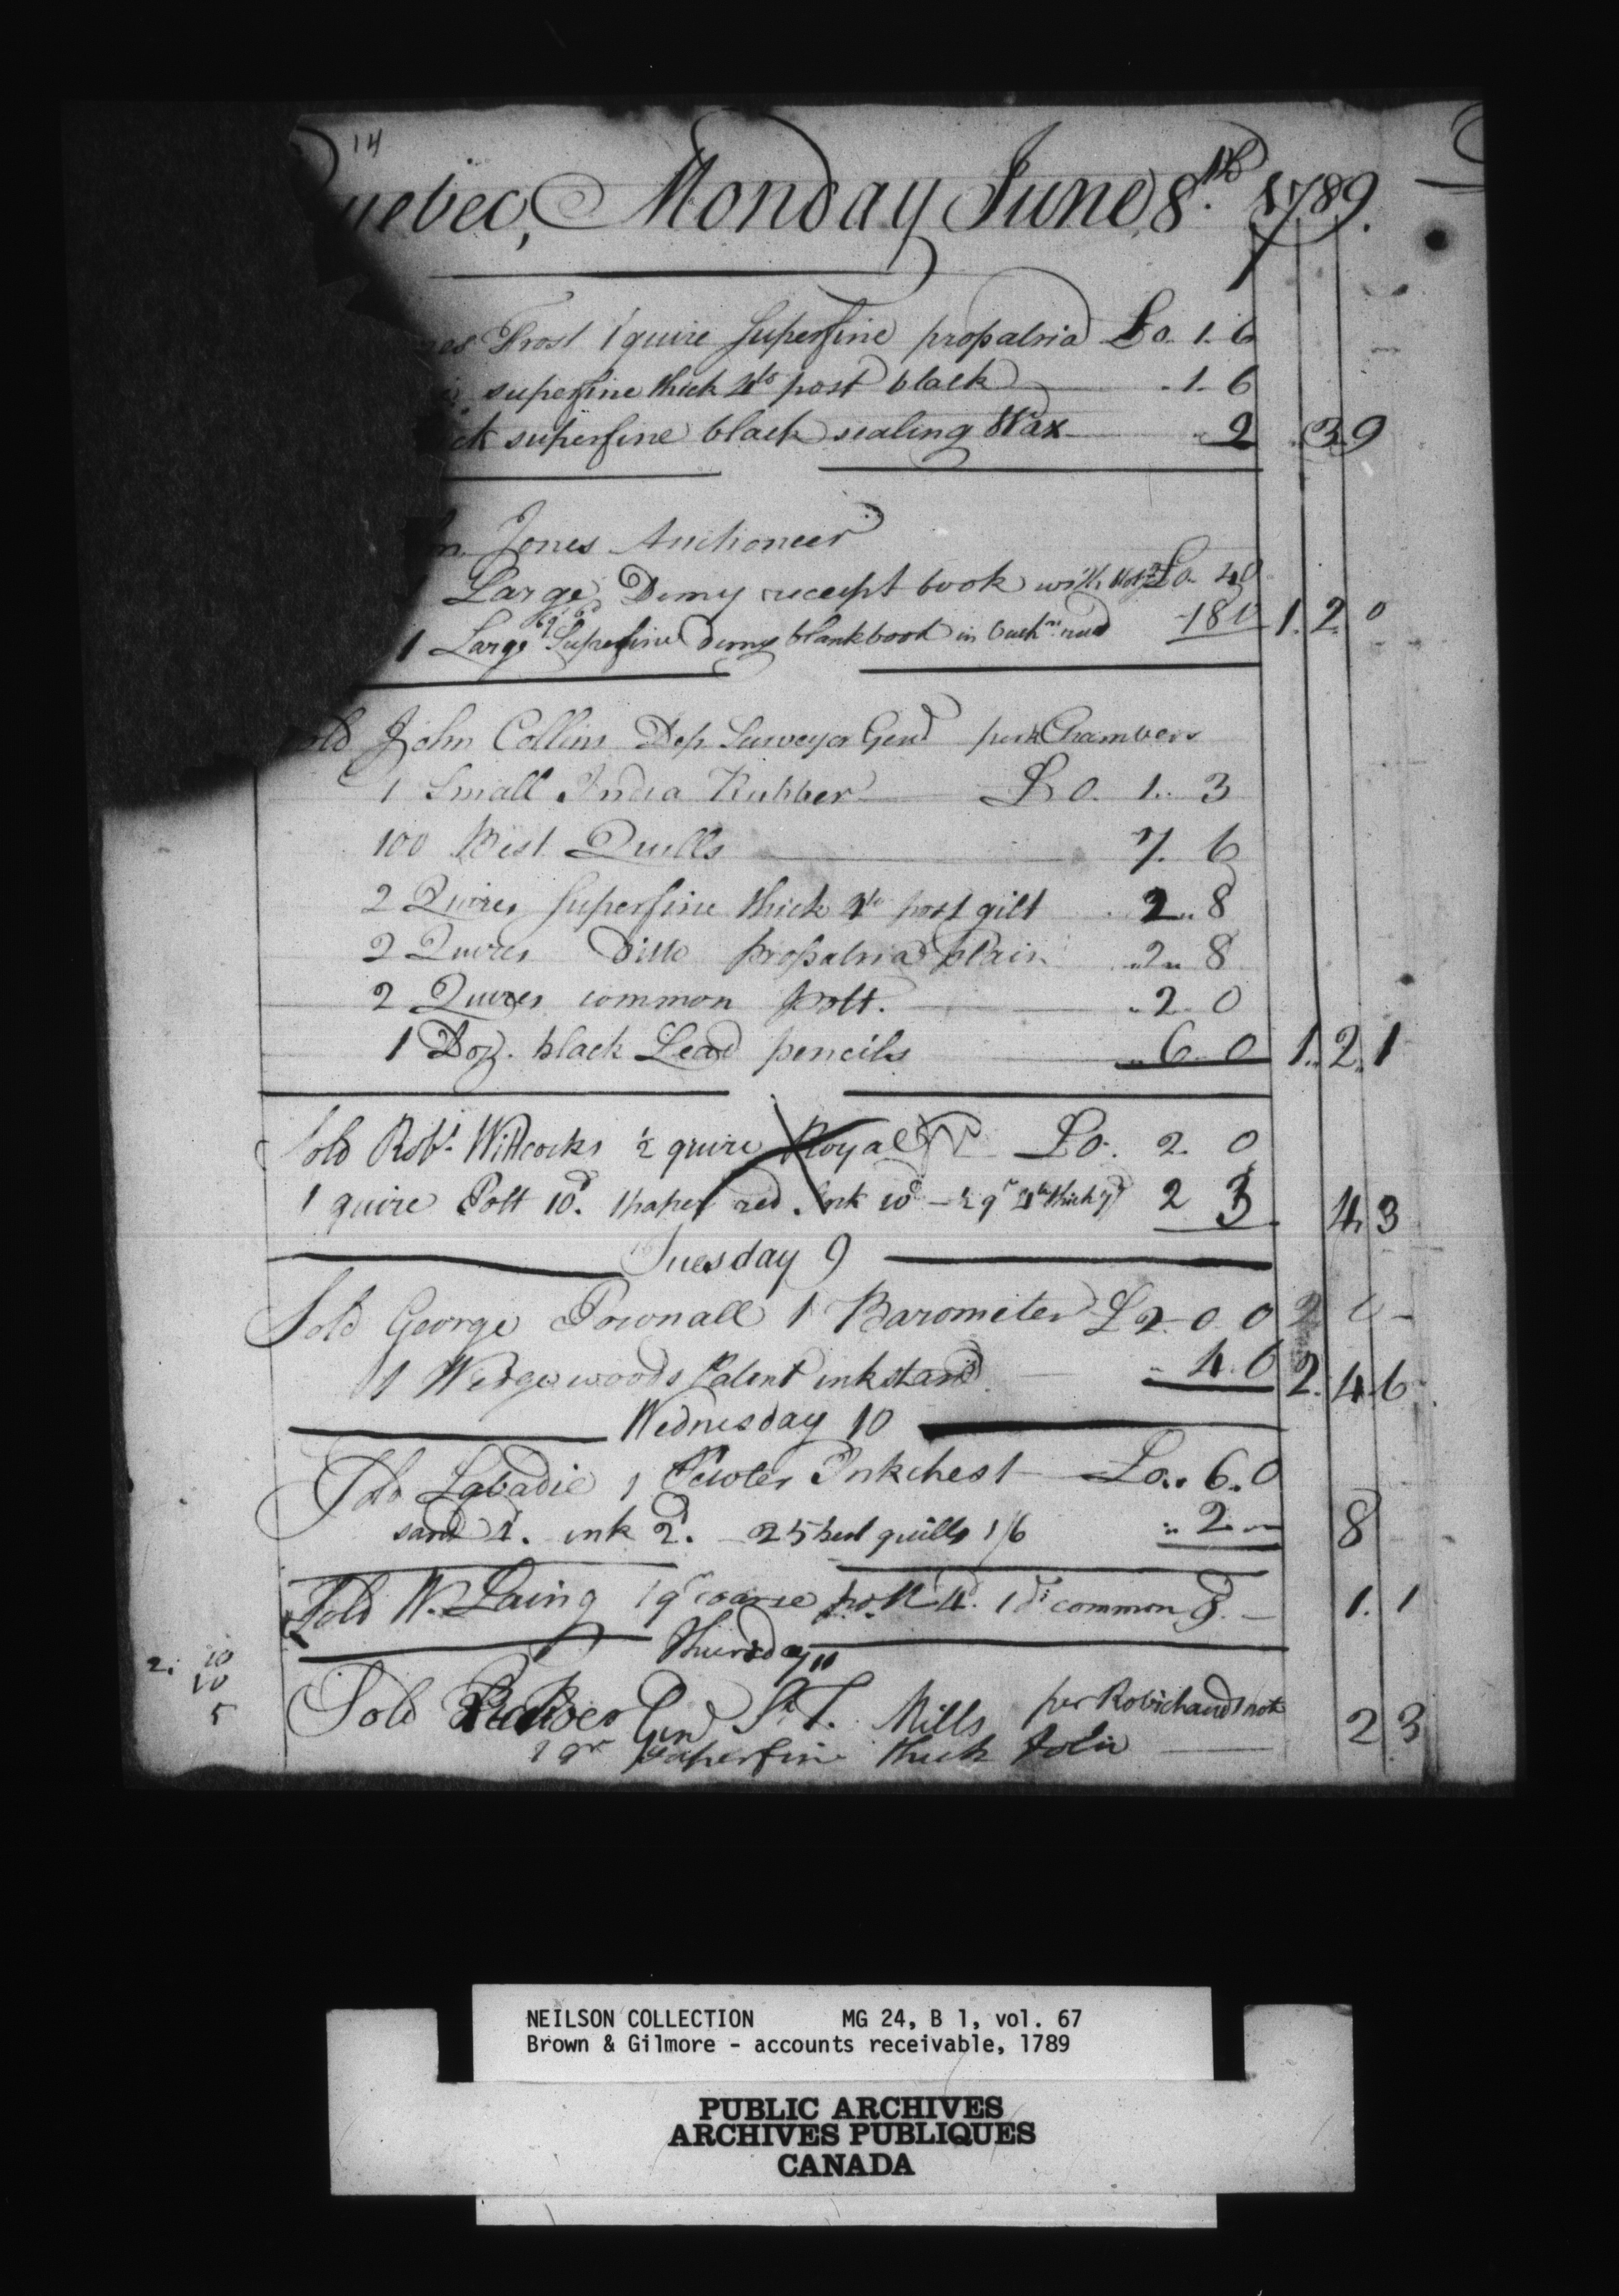 14
uebec, Monday June 8.th 1789.
es Frost 1 quire Superfine propatria £0. 1. 6
superfine thick 4to post black .1. 6
ck superfine black sealing Wax 9 .3 9
n. Jones Auctioneer
1 Large Demy receipt book with £0. 4.0
1 Large Superfine demy blankbook in 18 0 1. 2. 0
old John Collins Dep. Surveyor Genl per Chambers
1 Small India Rubber £0. 1.. 3
100 Best Quills 7. 6
2 Quires Superfine thick 4to post gilt 2.. 8
2 Quires Ditto propatria plain ..2.. 8
2 Quires common pott. ..2. 0
1 Doz. black Lead pencils ..6. 0 1.. 2.. 1
Sold Robt. Willcocks ½ quire Royal £0. 2. 0
1 quire Pott 10d. 1 paper red Ink 10d - ½ qr 4to thick 7d 2 3 4. 3
Tuesday 9
Sold George Pownall 1 Barometer £2. 0. 0 2 0 -
1 Wedgewoods Patent inkstand .. 4. 6 2. 4. 6
Wednesday 10
Sold Labadie 1 Pewter Inkchest £0.. 6. 0
sand 4d. ink 2d. 25 best quills 1/6 .. 2.. — 8
Sold W. Laing 1 qr coarse pott 4d. 1 do common 9. — 1. 1
Thursday 11
2. 10
10
5
Sold Genl Sr. T. Mills per Robichauds note
1 qr superfine thick folio 2 3
NEILSON COLLECTION MG 24, B 1, vol. 67
Brown & Gilmore - accounts receivable, 1789
PUBLIC ARCHIVES
ARCHIVES PUBLIQUES
CANADA